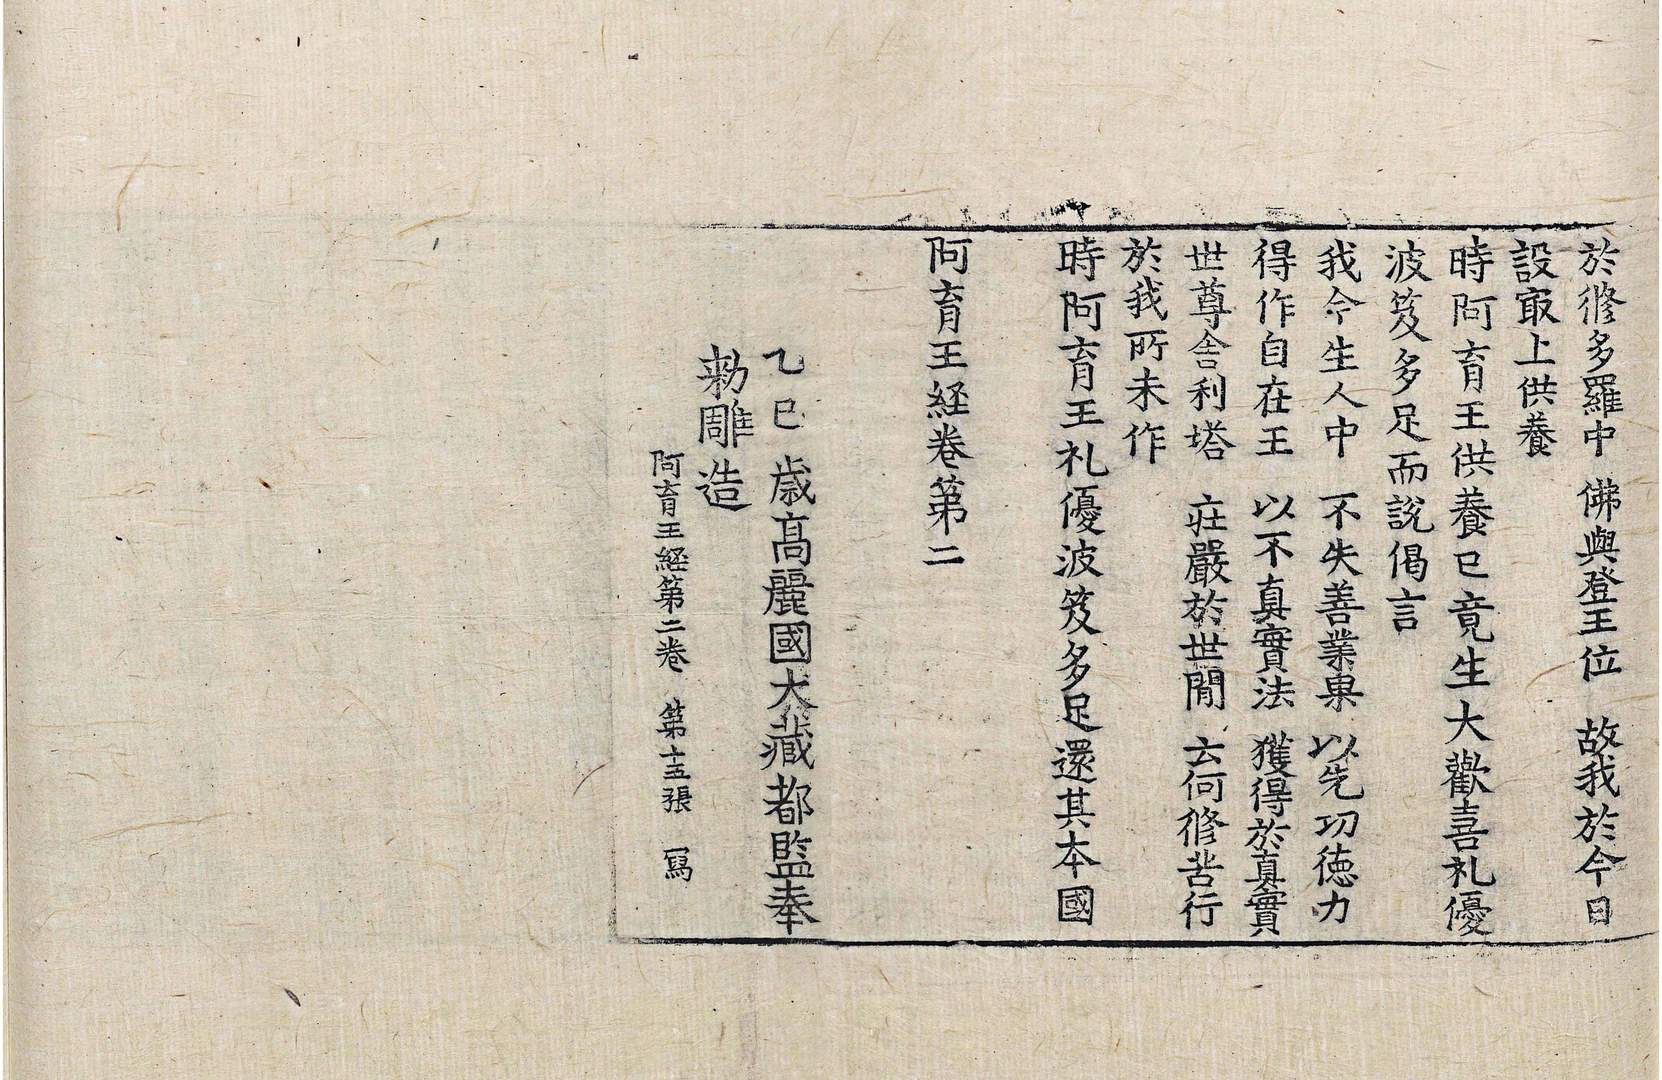 於修多羅中 佛與登王位 故我於今日
設㝡上供養
時阿育王供養已竟生大歡喜礼優
波笈多足而說偈言
我今生人中 不失善業果 以先功徳力
得作自在王 以不真實法 獲得於真實
世尊舍利塔 莊嚴於世閒 云何修苦行
於我所未作
時阿育王礼優波笈多足還其本國
阿育王経卷第二
乙巳歳高麗國大藏都監奉
勑雕造
阿育王経第二卷 第十五張 寫